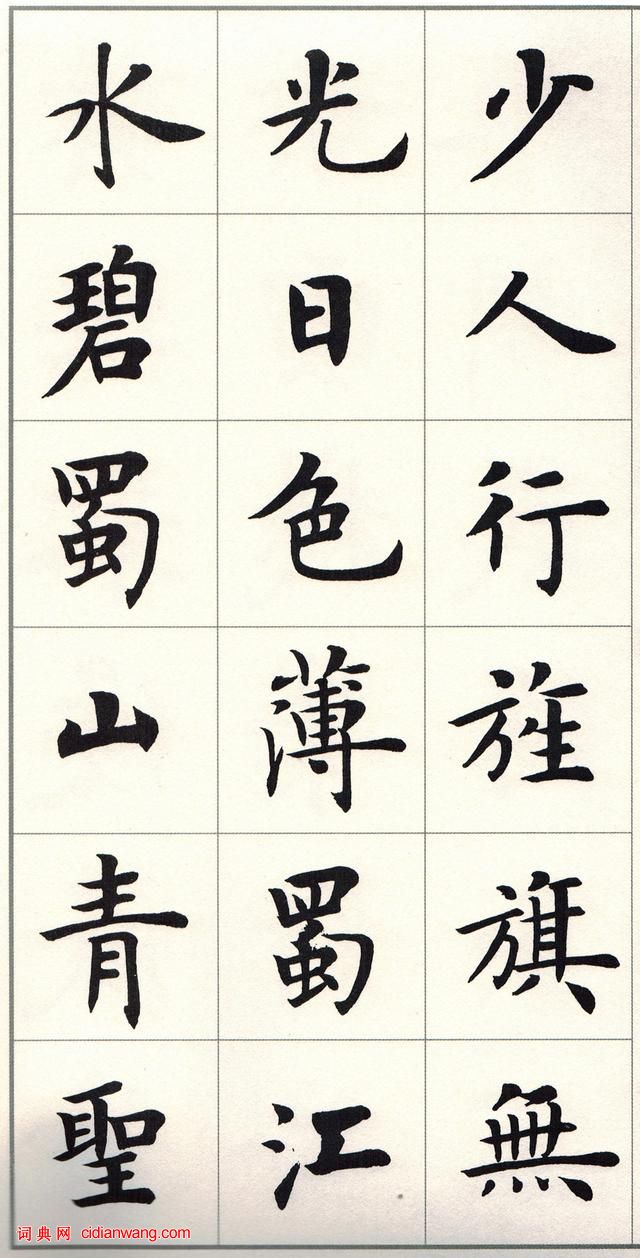 少人行旌旗無
光日色薄蜀江
水碧蜀山青聖
词典网 cidianwang.com